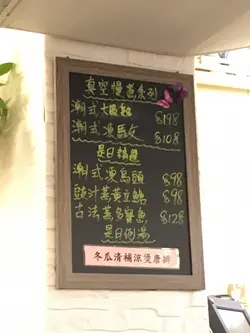 真空慢煮系列
潮式大眼鮐 $198
潮式凍馬友 $108
是日精選
潮式凍烏頭 $98
豉汁蒸黃立鯧 $98
古法蒸多寶魚 $128
是日例湯
冬瓜清補涼煲唐排